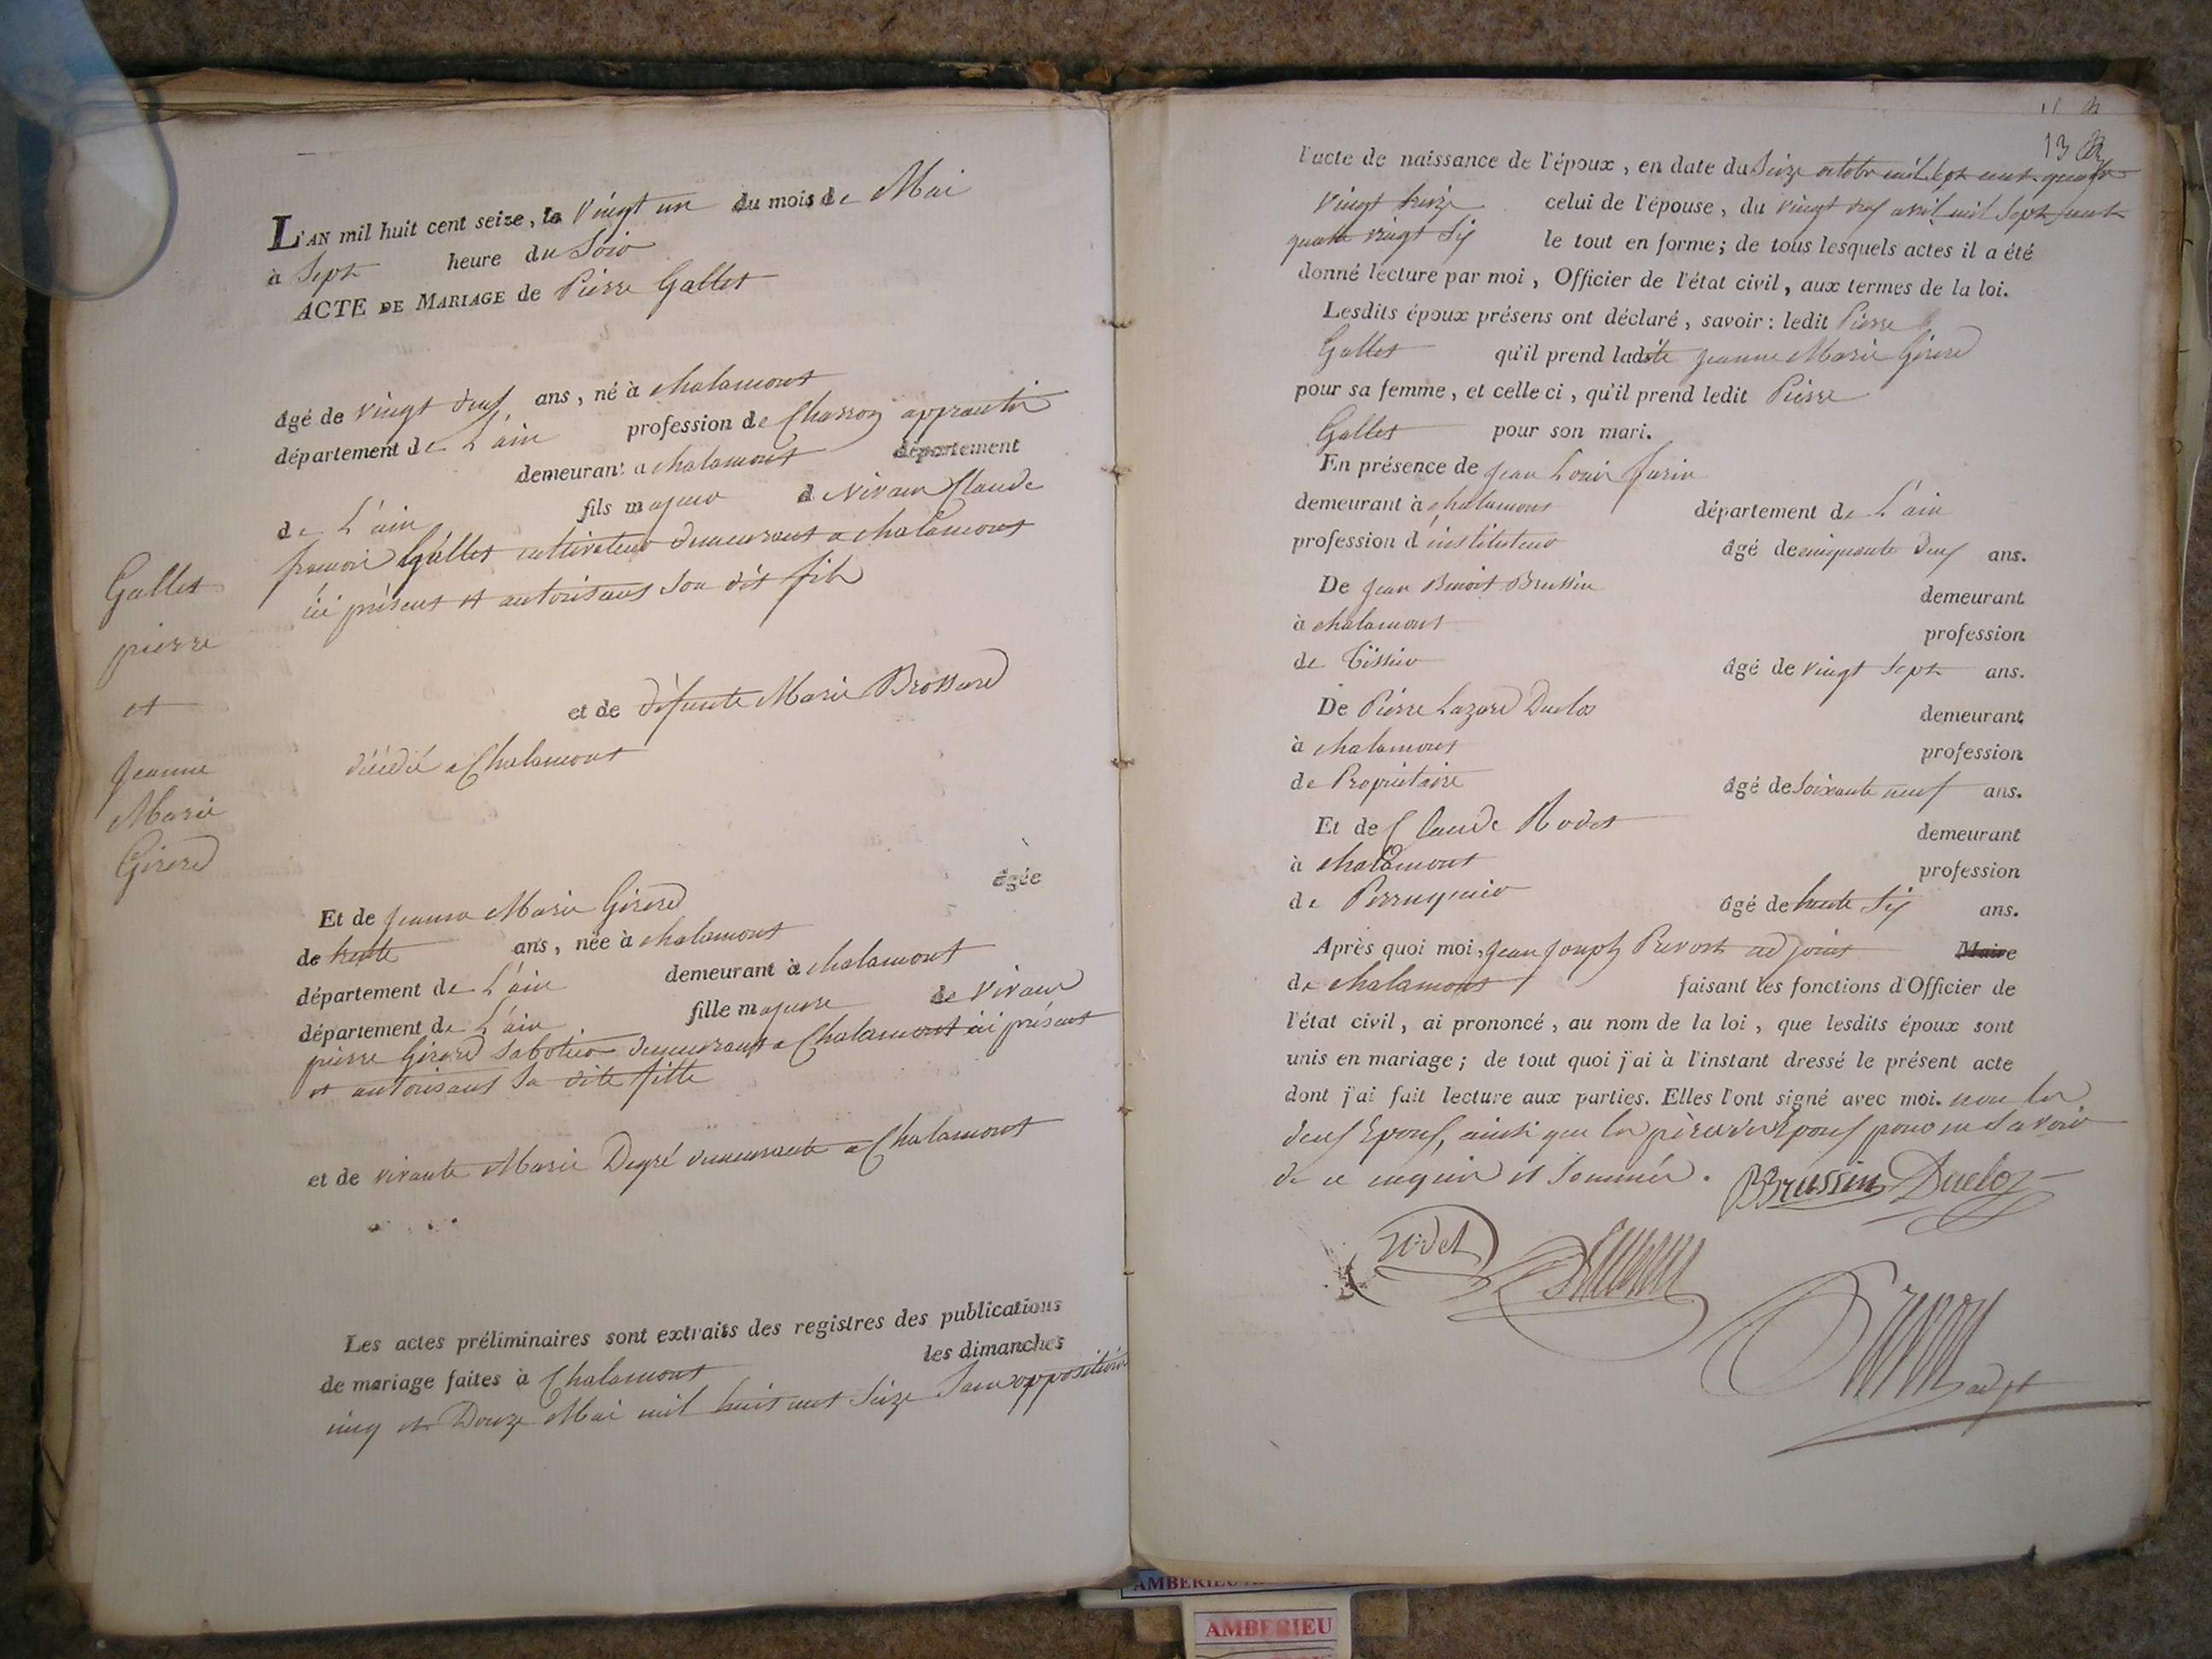 L'AN mil huit cent seize, le Vingt un du mois de Mai
à Sept heure du Soir
ACTE DE MARIAGE de Pierre Gallet
âgé de vingt deux ans, né à chalamont
département de L'ain profession de Charron apprantir
demeurant a chalamont département
de L'ain fils majeur de vivan Claude
francois Gallet cultivateur demeurant a chalamont
ici présent et autorisant son dit fils
et de défunte Marie Brossard
décédé a Chalamont
Gallet
pierre
et
Jeanne
Marie
Girerd
Et de Jeanne Marie Girerd âgée
de trente ans, née à chalamont
département de L'ain demeurant à chalamont
département de L'ain fille majeure de vivan
pierre Girerd Sabotier demeurant a Chalamont ici présent
et autorisant Sa dite fille
et de vivante Marie Degré demeurante a Chalamont
Les actes préliminaires sont extraits des registres des publications
de mariage faites à Chalamont les dimanches
cinq et Douze Mai mil huit cent Seize Sans opposition
13
l'acte de naissance de l'époux, en date du Seize octobre mil sept cent quatre
Vingt treize celui de l'épouse, du vingt deux avril mil Sept cent
quatre vingt Six le tout en forme; de tous lesquels actes il a été
donné lecture par moi, Officier de l'état civil, aux termes de la loi.
Lesdits époux présens ont déclaré, savoir: ledit Pierre
Gallet qu'il prend ladite jeanne Marie Girerd
pour sa femme, et celle ci, qu'il prend ledit Pierre
Gallet pour son mari.
En présence de Jean Louis
demeurant à chalamont département de L'ain
profession d'instituteur âgé de cinquante deux ans.
De Jean Benoit Brussin demeurant
à chalamont profession
de Tissier âgé de vingt Sept ans.
De Pierre Lazard Duclos demeurant
à chalamont profession
de Propriétaire âgé de Soixante neuf ans.
Et de Claude Rodet demeurant
à chalamont profession
de Perruquier âgé de trente Six ans.
Après quoi moi, Jean Joseph Prevost adjoint Maire
de chalamont faisant les fonctions d'Officier de
l'état civil, ai prononcé, au nom de la loi, que lesdits époux sont
unis en mariage; de tout quoi j'ai à l'instant dressé le présent acte
dont j'ai fait lecture aux parties. Elles l'ont signé avec moi. non les
deux Epoux, ainsi que les pères des Epoux pour ne Savoir
de ce enquis et Sommés. BBrussin Duclos
Rodet
adjt
AMBERIEU
AMBERIEU